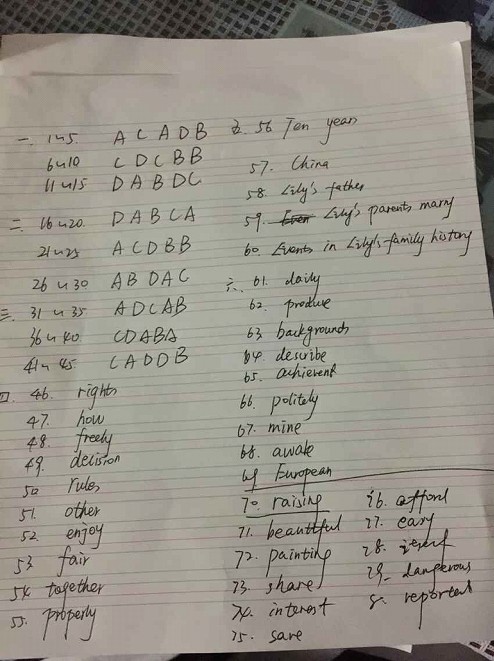 一. 1~5 A C A D B
6~10 C D C B B
11~15 D A B D C
二. 16~20. D A B C A
21~25 A C D B B
26~30 A B D A C
三. 31~35 A D C A B
36~40. C D A B A
41~45. C A D D B
四. 46. rights
47. how
48. freely
49. decision
50 rules
51. other
52 enjoy
53 fair
54. together
55. properly
五. 56 Ten years
57. China
58. Lily's father
59. Lily's parents marry
60. Events in Lily's family history
六. 61. daily
62. produce
63. backgrounds
64. describe
65. achievent
66. politely
67. mine
68. awake
69 European
70. raising
71. beautiful
72. painting
73. share
74. interest
75. save
76. afford
77. easy
78.
79. dangerous
8. reported